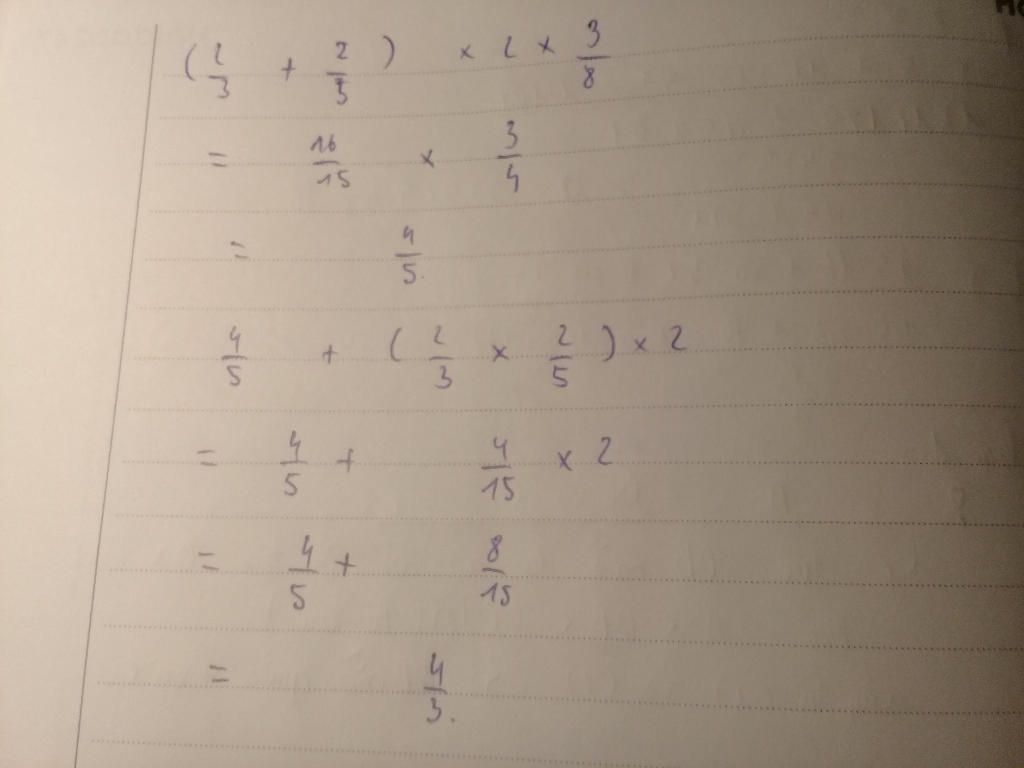 (2/3 + 2/5) × 2 × 3/8
= 16/15 × 3/4
= 4/5.
4/5 + (2/3 × 2/5) × 2
= 4/5 + 4/15 × 2
= 4/5 + 8/15
= 4/3.